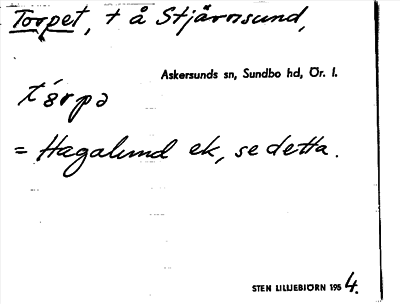 Torpet, t å Stjärnsund,
Askersunds sn, Sundbo hd, Ör. l.
= Hagalund ek, se detta.
STEN LILLJEBJÖRN 1954.